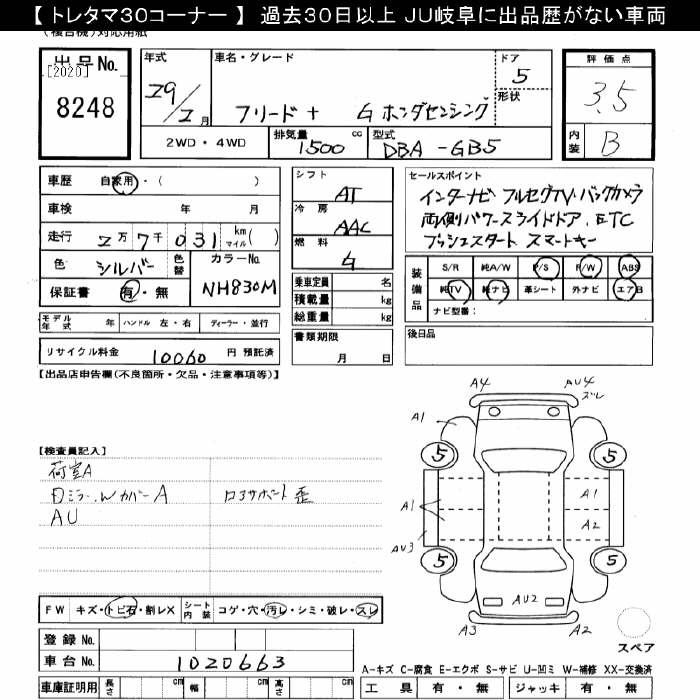 【 トレタマ30コーナー 】 過去30日以上 JU岐阜に出品歴がない車両
(複合機)対応用紙
出品No.
[2020]
8248
年式 29/2月
車名・グレード フリード+ G ホンダセンシング
ドア 5
形状
評価点 3.5
内装 B
2WD・4WD
排気量 1500 cc
型式 DBA-GB5
車歴 自家用・( )
車検 年 月
走行 2万7千031 km マイル( )
色 シルバー 色替
カラーNo. NH830M
保証書 有・無
モデル年式 年 ハンドル 左・右 ディーラー・並行
リサイクル料金 10060 円 預託済
シフト AT
冷房 AAC
燃料 G
乗車定員 名
積載量 kg
総重量 kg
書類期限 月 日
セールスポイント
インターナビ フルセグTV・バックカメラ
両側パワースライドドア. ETC
プッシュスタート スマートキー
装備品 S/R 純A/W P/S P/W ABS
純TV 純ナビ 革シート 外ナビ エアB
ナビ型番:
後日品
【出品店申告欄(不良箇所・欠品・注意事項等)】
【検査員記入】
荷室A
Dミラー. Wカバー A
コアサポート歪
AU
A4
AU4
ズレ
A1
5
5
A1
A1
A2
AU3
5
5
AU2
A3
A2
スペア
FW キズ・トビ石・割レX シート内装 コゲ・穴・汚レ・シミ・破レ・スレ
登録No.
車台No. 1020663
車庫証明用 長さ cm 幅 cm 高さ cm
A-キズ C-腐食 E-エクボ S-サビ U-凹ミ W-補修 XX-交換済
工具 有・無 ジャッキ 有・無